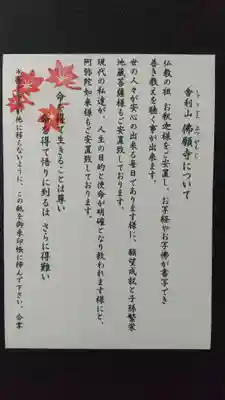 しゃりざん ぶつがんじ
舎利山 佛願寺について
仏教の祖、お釈迦様をご安置し、お写経やお字佛が書写でき
善き教えを聴く事が出来ます。
世の人々が安心の出来る毎日でありますように、願望成就と子孫繁栄
地蔵菩薩様もご安置致しております。
現代の私達が、人生の目的と使命が明確となり救われます様にと、
阿弥陀如来様もご安置致しております。
命を得て生きることは尊い
命を得て悟りに到るは さらに得難い
他に移らないように、この紙を御朱印帳に挿んで下さい。合掌